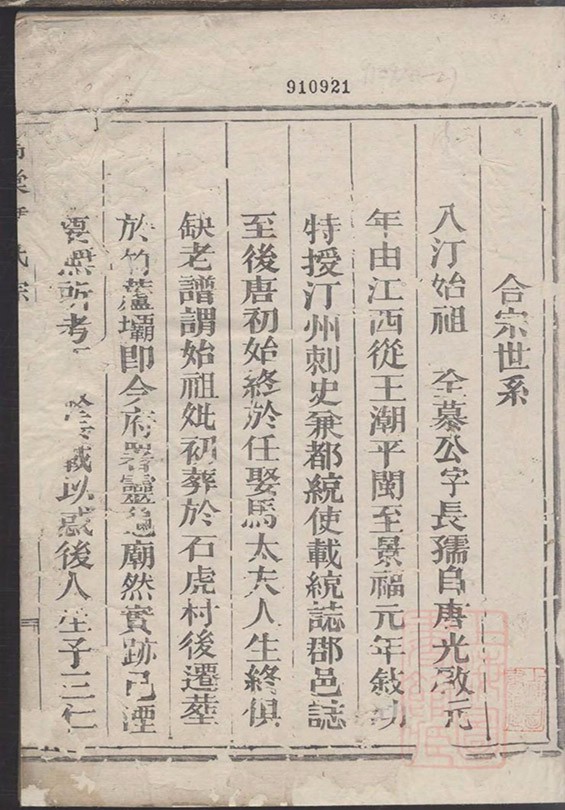 910921
合宗世系
入汀始祖 全慕公字長孺自唐光啟元
年由江西從王潮平閩至景福元年敍功
特授汀州刺史兼都統使載統誌郡邑誌
至後唐初始終於任娶馬太夫人生終俱
缺老譜謂始祖妣初葬於石虎村後遷塟
於竹蘆壩即今府署靈龜廟然實跡已湮
無所考 載以惑後人生子三仁
氏宗